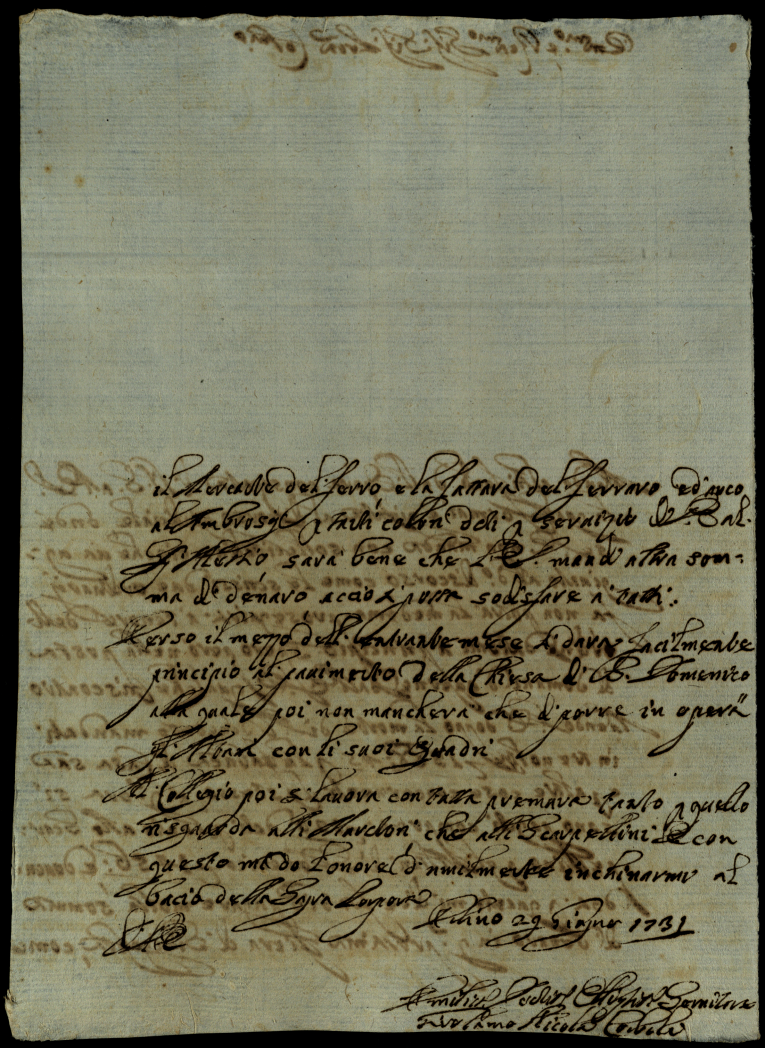 il Mercante del ferro e la fattura del ferraro ed' anco
al Ambrosij tutti colori servizio
sarà bene che V. E. mandi altra som=
ma di denaro acciò si possa sodisfare a' tutti.
Verso il mezzo dell' entrante mese si darà facilmente
principio al pavimento della Chiesa di S. Domenico
alla quale poi non mancherà che di porre in opera
gl' Altari con li suoi Quadri
Al Collegio poi si lavora con tutta premura tanto p quello
risguarda alli Muratori che alli Scarpellini Et con
questo mi do l' onore d' umilmente inchinarmi al
bacio della Sagra Porpora
Urbino 29 Giugno 1731
D. V. E.
Umiliss. Devotiss. Obligatiss. Servitore
Girolamo Nicola